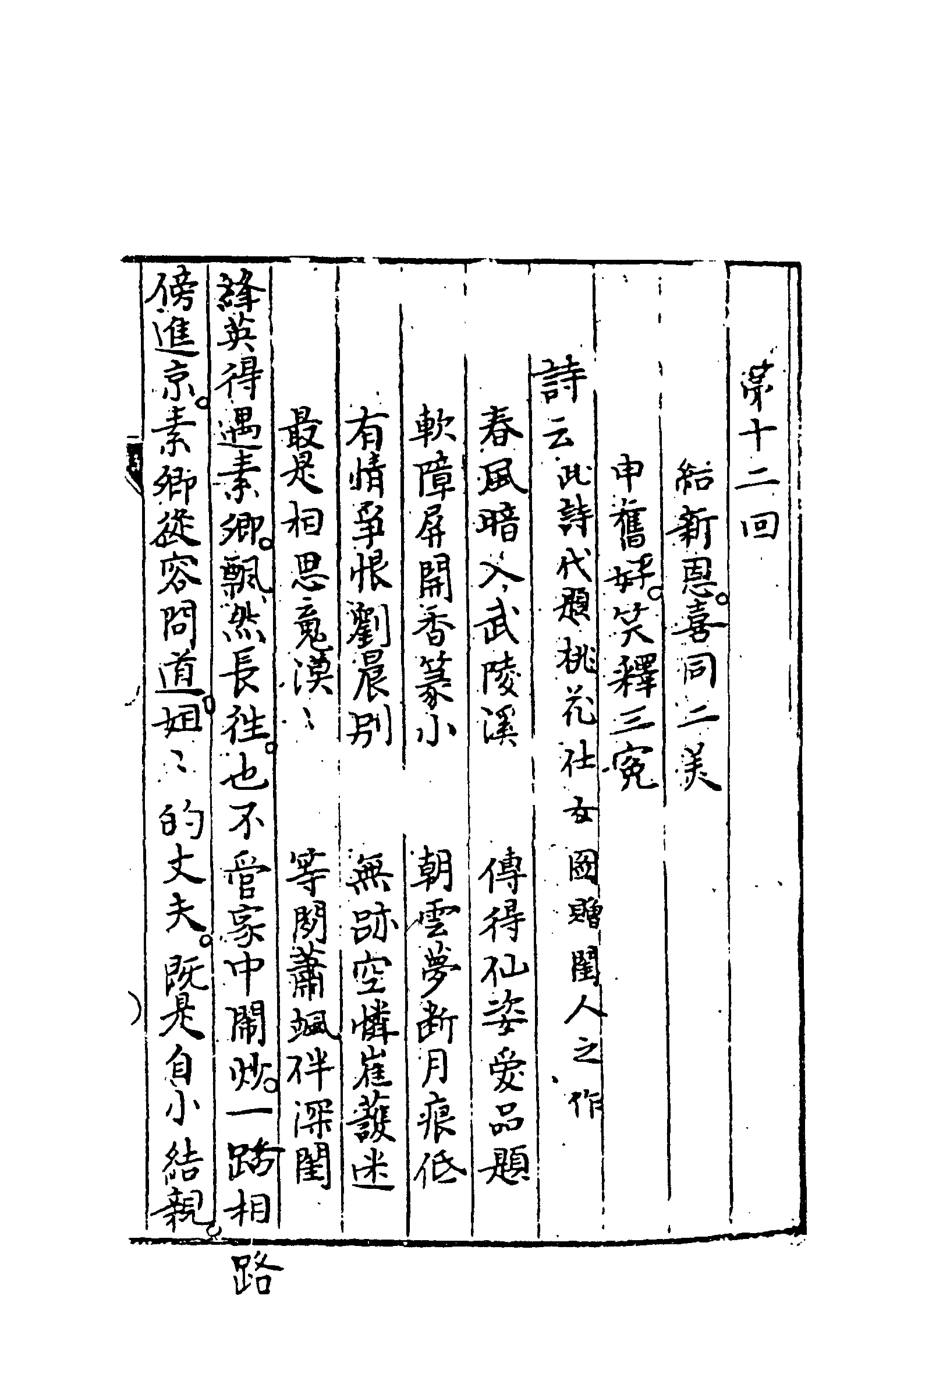 第十二回
結新恩。喜同二美
申舊好。笑釋三寃
詩云 此詩代題桃花仕女圖贈閨人之作
春風暗入武陵溪 傳得仙姿愛品題
軟障屏開香篆小 朝雲夢断月痕低
有情爭恨劉晨别 無跡空憐崔護迷
最是相思魂漠〻 等閒蕭颯伴深閨
絳英得遇素卿。飄然長徃。也不管家中鬧炒。一路相
傍進京。素卿從容問道。姐〻的丈夫。既是自小結親。
路